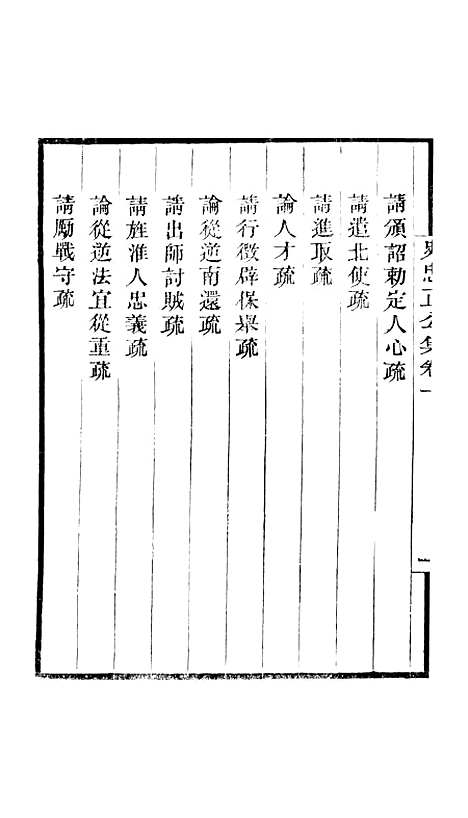 史忠正公集卷一
請頒詔勅定人心疏
請遣北使疏
請進取疏
論人才疏
請行徵辟保舉疏
論從逆南還疏
請出師討賊疏
請旌淮人忠義疏
論從逆法宜從重疏
請勵戰守疏